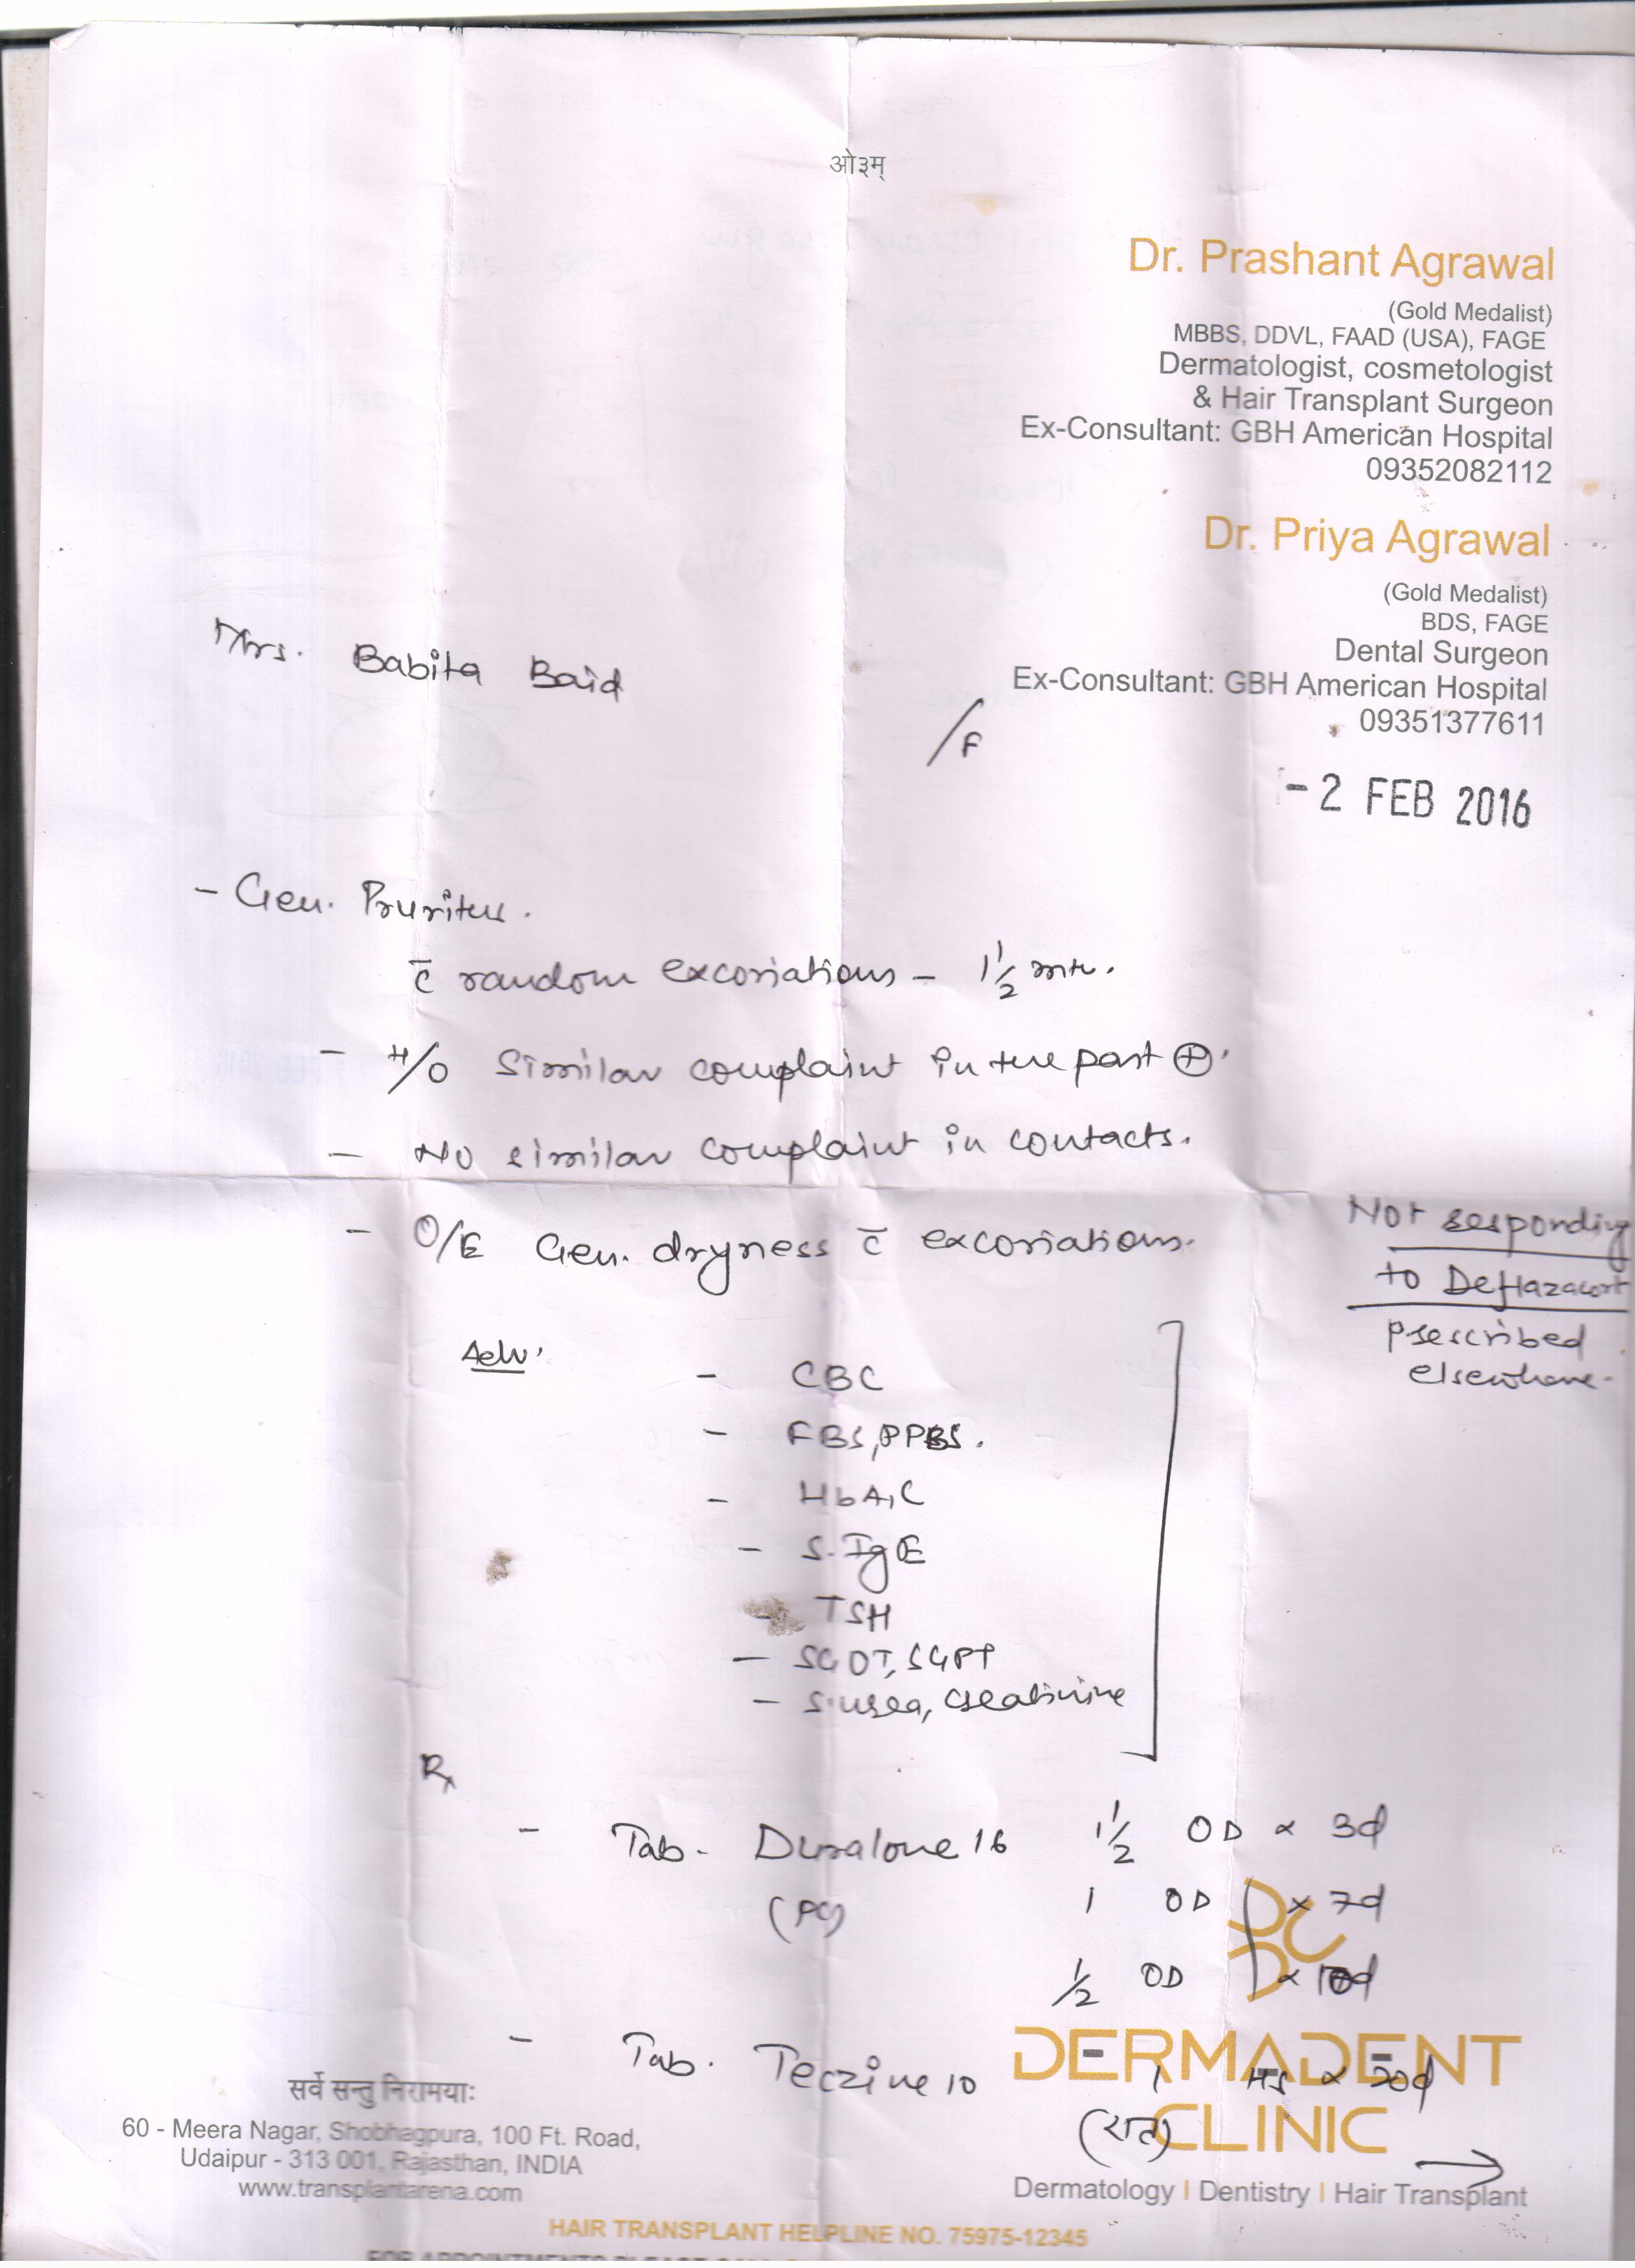 ओ३म्
Dr. Prashant Agrawal
(Gold Medalist)
MBBS, DDVL, FAAD (USA), FAGE
Dermatologist, cosmetologist
& Hair Transplant Surgeon
Ex-Consultant: GBH American Hospital
09352082112
Dr. Priya Agrawal
(Gold Medalist)
BDS, FAGE
Dental Surgeon
Ex-Consultant: GBH American Hospital
09351377611
Mrs. Babita Baid
/F
- 2 FEB 2016
- Gen. Pruritus.
c̄ random excoriations - 1 1/2 mth.
- H/O Similar complaint in the past ⊕.
- No similar complaint in contacts.
- O/E Gen. dryness c̄ excoriations.
Not responding
to Deflazacort
prescribed
elsewhere.
Adv.
- CBC
- FBS, PPBS.
- HbA1C
- S. IgE
- TSH
- SGOT, SGPT
- S. urea, creatinine
Rx
- Tab. Duralone 16 1 1/2 OD x 3d
(PC) 1 OD x 7d
1/2 OD x 10d
- Tab. Teczine 10 1 HS x 20d
(रात)
DERMADENT
CLINIC
Dermatology | Dentistry | Hair Transplant
सर्वे सन्तु निरामयाः
60 - Meera Nagar, Shobhagpura, 100 Ft. Road,
Udaipur - 313 001, Rajasthan, INDIA
www.transplantarena.com
HAIR TRANSPLANT HELPLINE NO. 75975-12345